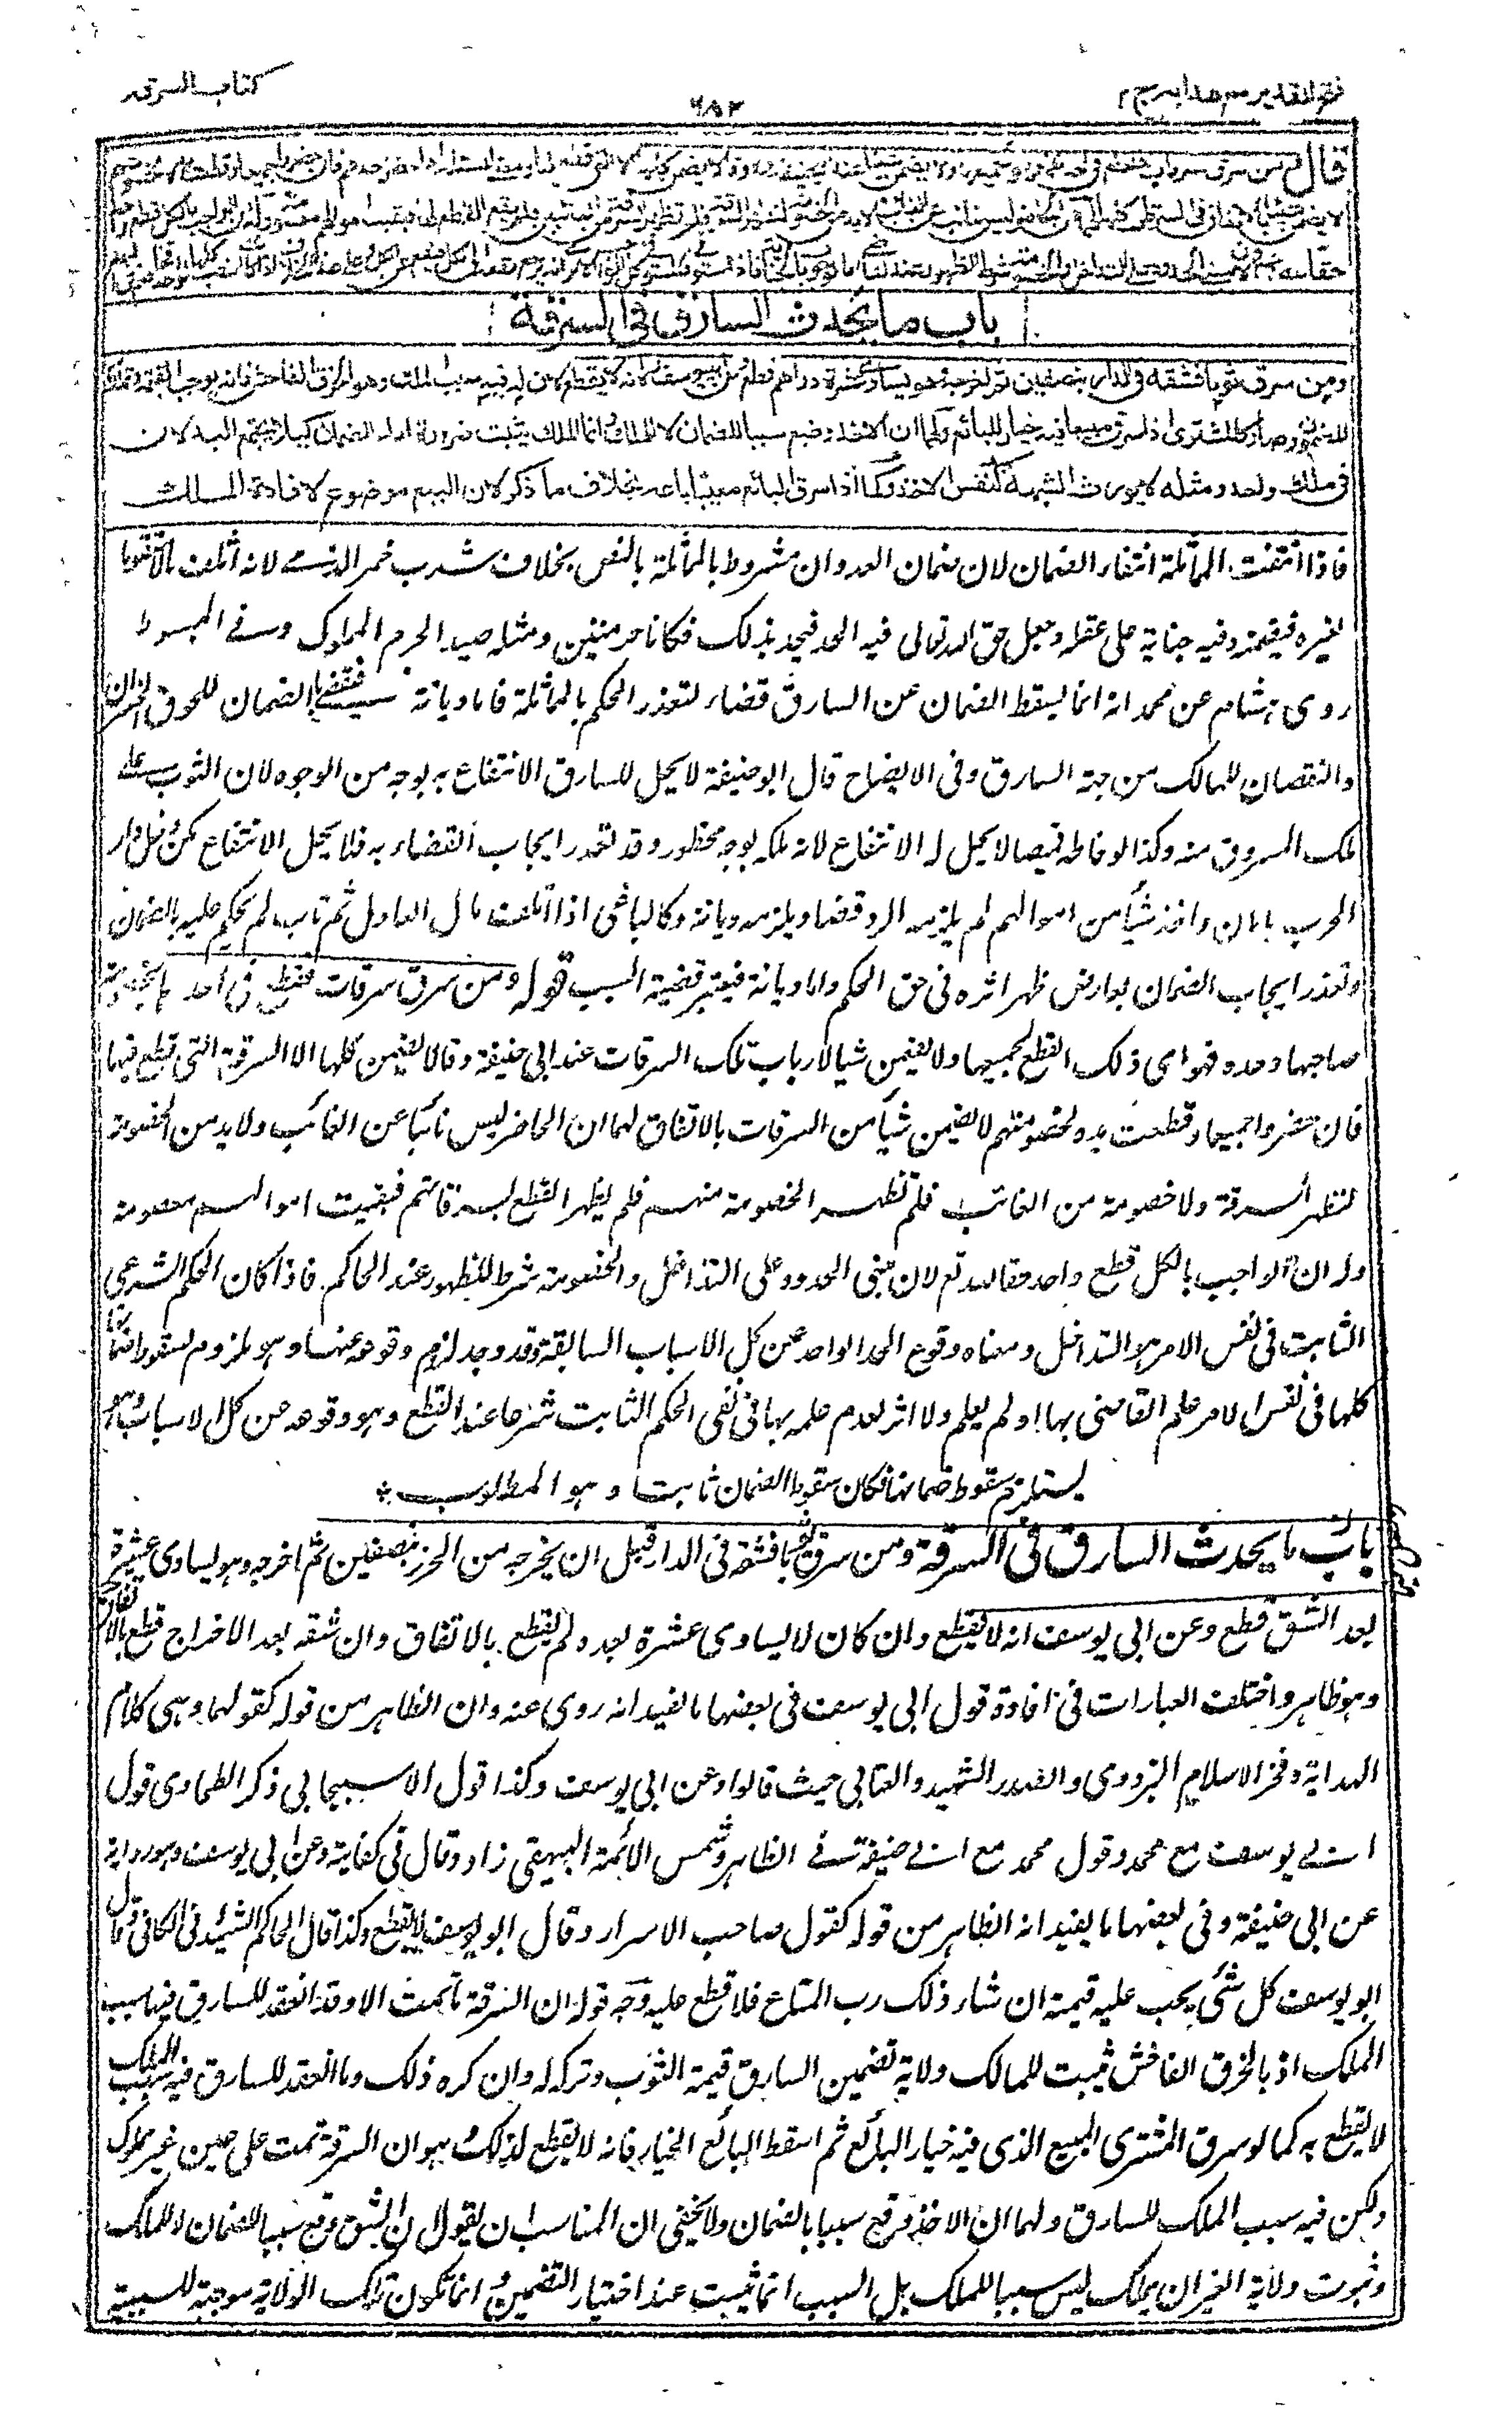 كتاب السرقة
٦٨٢
فتح القدير مع هدايه ج ٢
قال ومن سرق سرقات فقطع في احدها فهو لجميعها ولا يضمن شيئا عند ابي حنيفة
باب ما يحدث السارق في السرقة
ومن سرق ثوبا فشقه في الدار بنصفين ثم اخرجه وهو يساوي عشرة دراهم قطع وعن ابي يوسف انه لا يقطع لان له فيه سبب الملك وهو الخرق الفاحش فانه يوجب القيمة وتملك
المضمون وصار كالمشتري اذا سرق مبيعا فيه خيار للبائع ولهما ان الاخذ وضع سببا للضمان لا للملك وانما الملك يثبت ضرورة اداء الضمان كيلا يجتمع البدلان
في ملك واحد ومثله لا يورث الشبهة كنفس الاخذ وكما اذا سرق البائع معيبا باعه بخلاف ما ذكر لان البيع موضوع لافادة الملك
فاذا انتفت المماثلة انتفاء الضمان لان ضمان العدوان مشروط بالمماثلة بالنص بخلاف شرب خمر الذمي لانه اتلف
لغيره فيضمنه وفيه جناية على عقله وجعل حق الله تعالى فيه الحد فيحد بذلك فكانا حرمتين ومثله صيد الحرم المملوك وفي المبسوط
روى هشام عن محمد انه انما يسقط الضمان عن السارق قضاء لتعذر الحكم بالمماثلة فاما ديانة فيفتى بالضمان للحوق الخسران
والنقصان للمالك من جهة السارق وفي الايضاح قال ابو حنيفة لا يحل للسارق الانتفاع به بوجه من الوجوه لان الثوب على
ملك المسروق منه وكذا لو خاطه قميصا لا يحل له الانتفاع لانه ملكه بوجه محظور وقد تعذر ايجاب القضاء به فلا يحل الانتفاع كمن دخل دار
الحرب بامان واخذ شيأ من اموالهم لم يلزمه الرد قضاء ويلزمه ديانة وكالباغي اذا اتلف مال العادل ثم تاب لم يحكم عليه بالضمان
وتعذر ايجاب الضمان بعارض ظهر اثره في حق الحكم واما ديانة فيعتبر قضية السبب قوله ومن سرق سرقات فقطع في احدها بخصومة
صاحبها وحده فهو اي ذلك القطع لجميعها ولا يضمن شيأ لارباب تلك السرقات عند ابي حنيفة وقالا يضمن كلها الا السرقة التي قطع فيها
فان حضروا جميعا وقطعت يده لخصومتهم لا يضمن شيأ من السرقات بالاتفاق لهما ان الحاضر ليس نائبا عن الغائب ولا بد من الخصومة
لتظهر السرقة ولا خصومة من الغائب فلم تظهر الخصومة منهم فلم يظهر القطع لسرقاتهم فبقيت اموالهم معصومة
وله ان الواجب بالكل قطع واحد حقا لله تع لان مبنى الحدود على التداخل والخصومة شرط للظهور عند الحاكم فاذا كان الحكم الشرعي
الثابت في نفس الامر هو التداخل ومعناه وقوع الحد الواحد عن كل الاسباب السابقة وقد وجد لزم وقوعه عنها وهو ملزوم لسقوط ضمانها
كلها في نفس الامر علم القاضي بها او لم يعلم ولا اثر لعدم علمه بها في نفي الحكم الثابت شرعا عند القطع وهو وقوعه عن كل الاسباب وهو
يستلزم سقوط ضمانها فكان سقوط الضمان ثابتا وهو المطلوب
باب ما يحدث السارق في السرقة ومن سرق ثوبا فشقه في الدار قبل ان يخرجه من الحرز نصفين ثم اخرجه وهو يساوي عشرة
بعد الشق قطع وعن ابي يوسف انه لا يقطع وان كان لا يساوي عشرة بعده لم يقطع بالاتفاق وان شقه بعد الاخراج قطع بالاتفاق
وهو ظاهر واختلفت العبارات في افادة قول ابي يوسف في بعضها ما يفيد انه روى عنه وان الظاهر من قوله كقولهما وهي كلام
الهداية وفخر الاسلام البزدوي والصدر الشهيد والعتابي حيث قالوا وعن ابي يوسف وكذا قول الاسبيجابي ذكر الطحاوي قول
ابي يوسف مع محمد وقول محمد مع ابي حنيفة في الظاهر وشمس الائمة البيهقي زاد وقال في كفايته وعن ابي يوسف وهو رواية
عن ابي حنيفة وفي بعضها ما يفيد انه الظاهر من قوله كقول صاحب الاسرار وقال ابو يوسف لا يقطع وكذا قال الحاكم الشهيد في الكافي قال
ابو يوسف كل شئ يجب عليه قيمته ان شاء ذلك رب المتاع فلا قطع عليه وجه قوله ان السرقة ما تمت الا وقد انعقد للسارق فيها سبب
الملك اذ بالخرق الفاحش ثبت للمالك ولاية تضمين السارق قيمة الثوب وتركه له وان كره ذلك وما انعقد للسارق فيه سبب الملك
لا يقطع به كما لو سرق المشتري المبيع الذي فيه خيار البائع ثم اسقط البائع الخيار فانه لا يقطع لذلك وهو ان السرقة تمت على عين غير مملوك
ولكن فيه سبب الملك للسارق ولهما ان الاخذ وقع سببا بالضمان ولا يخفى ان المناسب ان يقول ان الشق وقع سببا للضمان لا للملك
وثبوت ولاية الغير ان يملك ليس سببا للملك بل السبب انما ثبت عند اختيار التضمين وانما تكون تلك الولاية موجبة للسببية